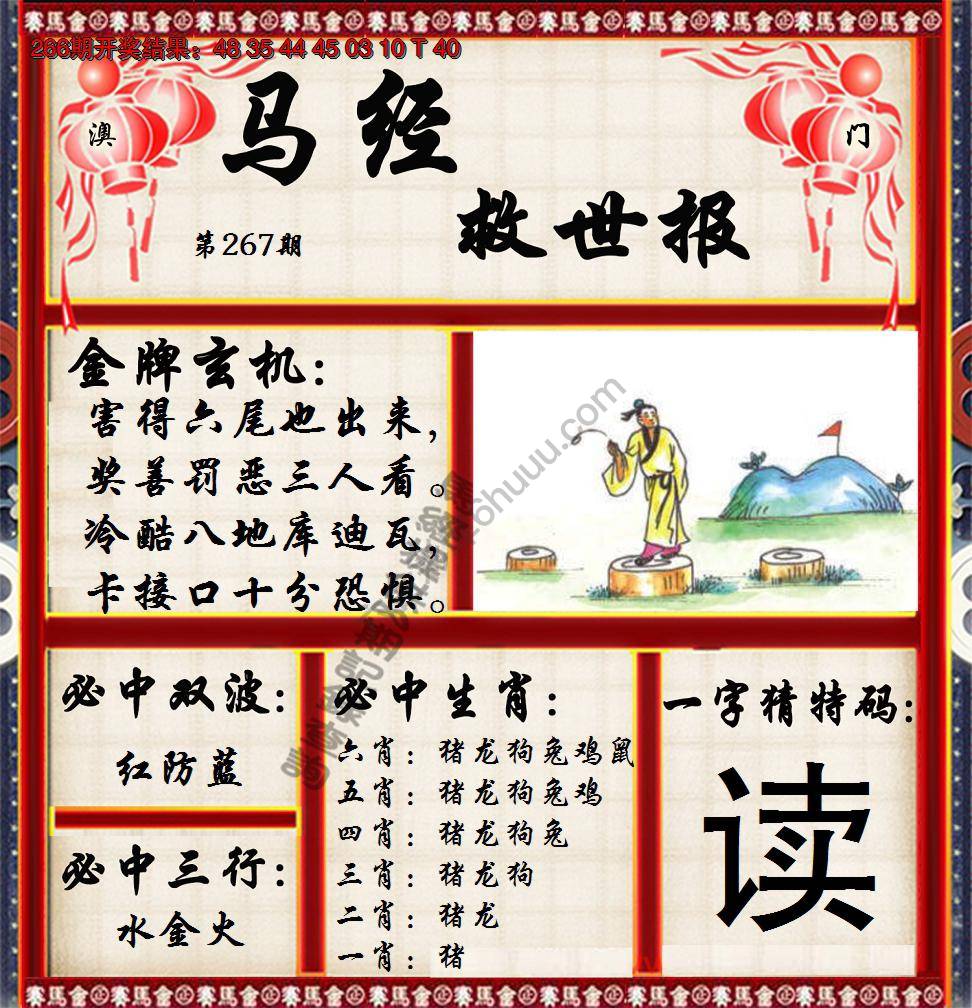 266期开奖结果：48 35 44 45 03 10 T 40
澳
门
马经
救世报
第267期
金牌玄机：
害得六尾也出来，
奖善罚恶三人看。
冷酷八地库迪瓦，
卡接口十分恐惧。
必中双波：
红防蓝
必中三行：
水金火
必中生肖：
六肖：猪龙狗兔鸡鼠
五肖：猪龙狗兔鸡
四肖：猪龙狗兔
三肖：猪龙狗
二肖：猪龙
一肖：猪
一字猜特码：
读